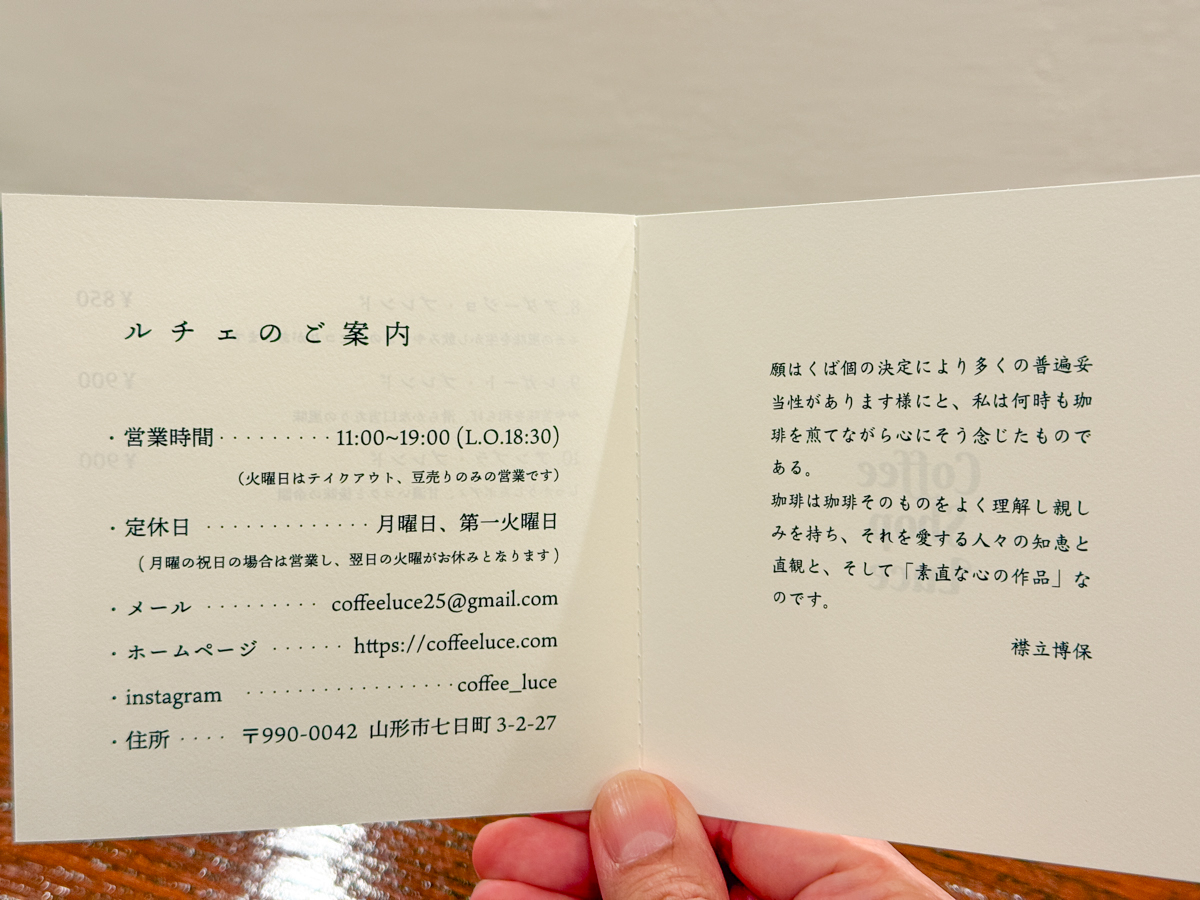 ルチェのご案内
・営業時間 ・・・・・・・・・ 11:00~19:00 (L.O.18:30)
（火曜日はテイクアウト、豆売りのみの営業です）
・定休日 ・・・・・・・・・・・・・ 月曜日、第一火曜日
（月曜の祝日の場合は営業し、翌日の火曜がお休みとなります）
・メール ・・・・・・・・・ coffeeluce25@gmail.com
・ホームページ ・・・・・・ https://coffeeluce.com
・instagram ・・・・・・・・・・・・・・・・・ coffee_luce
・住所 ・・・・ 〒990-0042 山形市七日町 3-2-27
願はくば個の決定により多くの普遍妥
当性があります様にと、私は何時も珈
琲を煎てながら心にそう念じたもので
ある。
珈琲は珈琲そのものをよく理解し親し
みを持ち、それを愛する人々の知恵と
直観と、そして「素直な心の作品」な
のです。
襟立博保
Coffee
Shop
Luce
¥850
¥900
¥900